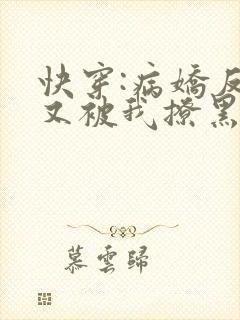 快穿:病嬌反
又被我撩黑
慕雲歸